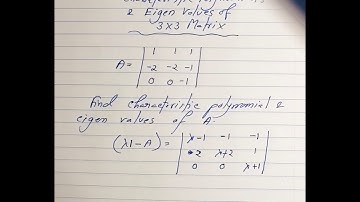 & Eigen values of
3x3 Matrix
A = | 1 1 1 |
| -2 -2 -1 |
| 0 0 -1 |
find characteristic polynomial &
eigen values of A.
(λI-A) = | λ-1 -1 -1 |
| 2 λ+2 1 |
| 0 0 λ+1 |